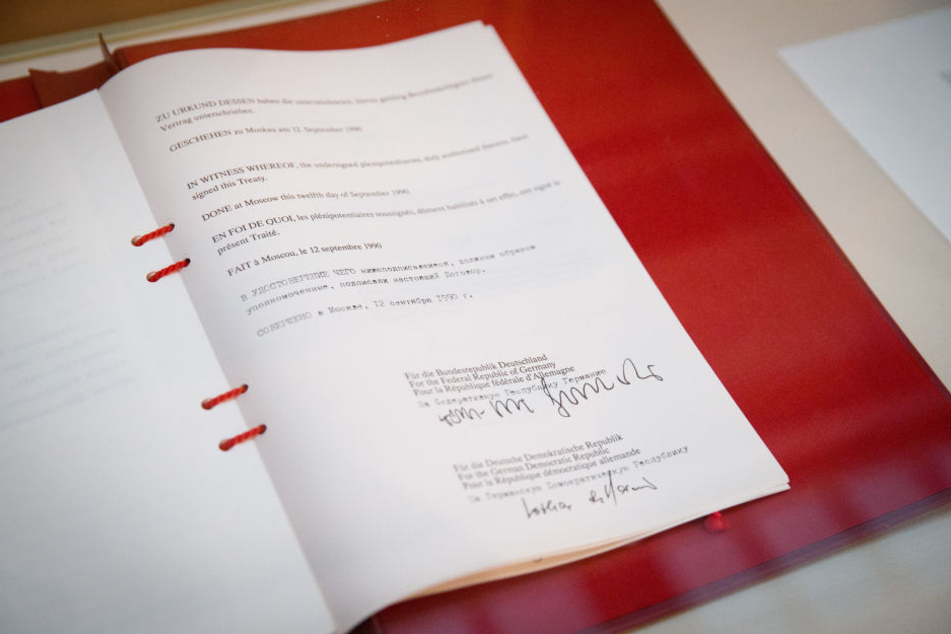 ZU URKUND DESSEN haben die unterzeichneten, hierzu gehörig Bevollmächtigten diesen
Vertrag unterschrieben.
GESCHEHEN zu Moskau am 12. September 1990
IN WITNESS WHEREOF, the undersigned plenipotentiaries, duly authorized thereto, have
signed this Treaty.
DONE at Moscow this twelfth day of September 1990.
EN FOI DE QUOI, les plénipotentiaires soussignés, dûment habilités à cet effet, ont signé le
présent Traité.
FAIT à Moscou, le 12 septembre 1990
В УДОСТОВЕРЕНИЕ ЧЕГО нижеподписавшиеся, должным образом
уполномоченные, подписали настоящий Договор.
СОВЕРШЕНО в Москве, 12 сентября 1990 г.
Für die Bundesrepublik Deutschland
For the Federal Republic of Germany
Pour la République fédérale d'Allemagne
За Федеративную Республику Германию
Für die Deutsche Demokratische Republik
For the German Democratic Republic
Pour la République démocratique allemande
За Германскую Демократическую Республику
Lothar de Maizière